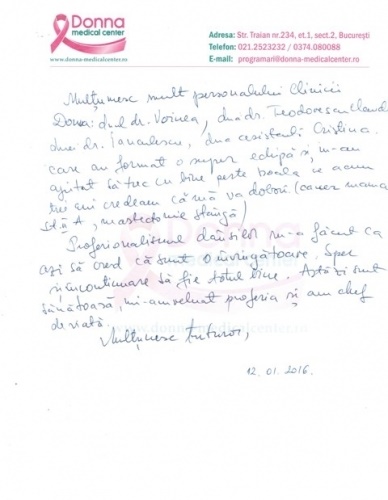 Donna
medical center
www.donna-medicalcenter.ro
Adresa: Str. Traian nr.234, et.1, sect.2, București
Telefon: 021.2523232 / 0374.080088
E-mail: programari@donna-medicalcenter.ro
Mulțumesc mult personalului Clinicii
Donna: d-nul dr. Voinea, d-na dr. Teodorescu
d-nei dr. Ianculescu, d-na asistentă Cristina
care au format o super echipă și m-au
ajutat să trec cu bine peste boala ce acum
trei ani credeam că mă va doborî (cancer mamar
st. A, mastectomie stângă)
Profesionalismul dânșilor m-a făcut ca
azi să cred că sunt o învingătoare. Sper
în continuare să fie totul bine. Astăzi sunt
sănătoasă, mi-am reluat profesia și am chef
de viață.
Mulțumesc tuturor,
www.donna-medicalcenter.ro
12.01.2016.